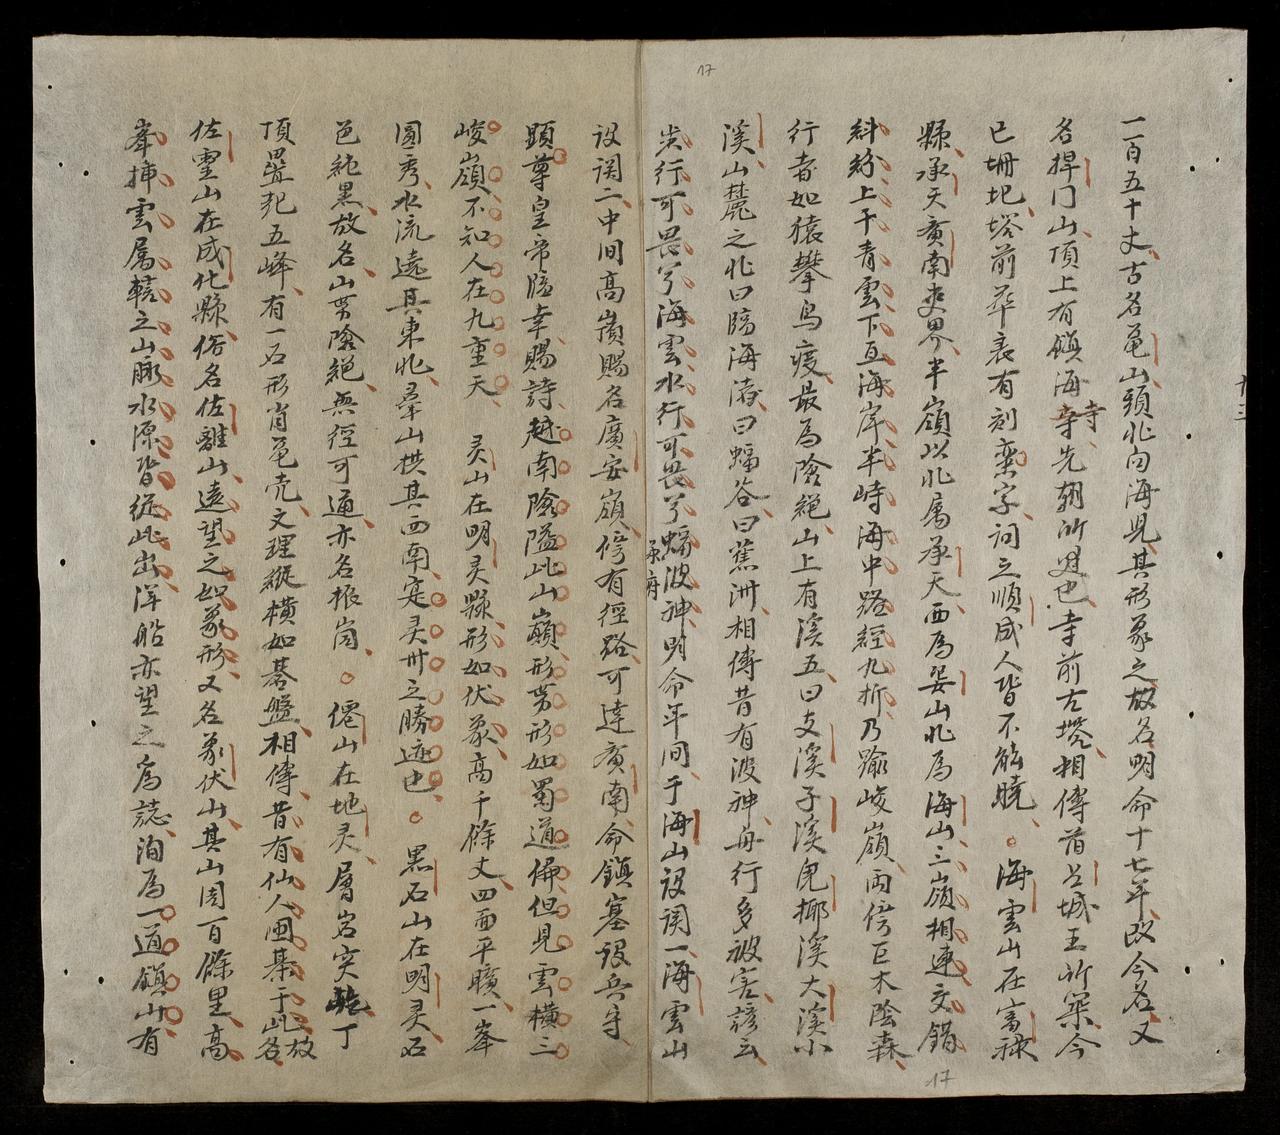 17
一百五十丈古名龟山頭北向海児其形象之故名明命十七年改今名又
名捍门山頂上有鎮海寺先朝所建也寺前古塔相傳昔占城王所築今
已坍圮塔前華表有刻蛮字詞之順成人皆不能曉○海雲山在富禄
縣承天廣南夾界半嶺以北属承天西為晏山北為海山三嶺相連交錯
糾紛上干青雲下亙海岸半峙海中路經九折乃踰峻嶺兩傍巨木陰森
行者如猿攀鸟度最為險絕山上有溪五曰支溪子溪兔揶溪大溪小
溪山麓之北曰臨海潡曰蝠谷曰蕉洲相傳昔有波神舟行多被害諺云
步行可畏兮海雲水行可畏兮蝠波神明命年间于海山设関一海雲山
设関二中间高嶺賜名廣安嶺傍有徑路可達廣南命鎮塞設兵守
顕尊皇帝临幸賜詩越南險隘此山巔形势形如蜀道偏但見雲横三
峻嶺不知人在九重天 灵山在明灵縣形如伏象高千餘丈四面平曠一峯
圓秀水流遠其東北羣山拱其西南寔灵州之勝迹也○黑石山在明灵石
色純黑故名山势險絕無徑可通亦名根崗○僊山在地灵層岩突乾丁
頂疊起五峰有一石形肖龟壳文理縱横如碁盤相傳昔有仙人围棊于此故名
佐灵山在成化縣俗名佐離山遠望之如象形又名象伏山其山周百餘里高
峯挿雲属轄之山脉水源皆從此出洋船亦望之為誌洵為一道鎮山有
承府
17